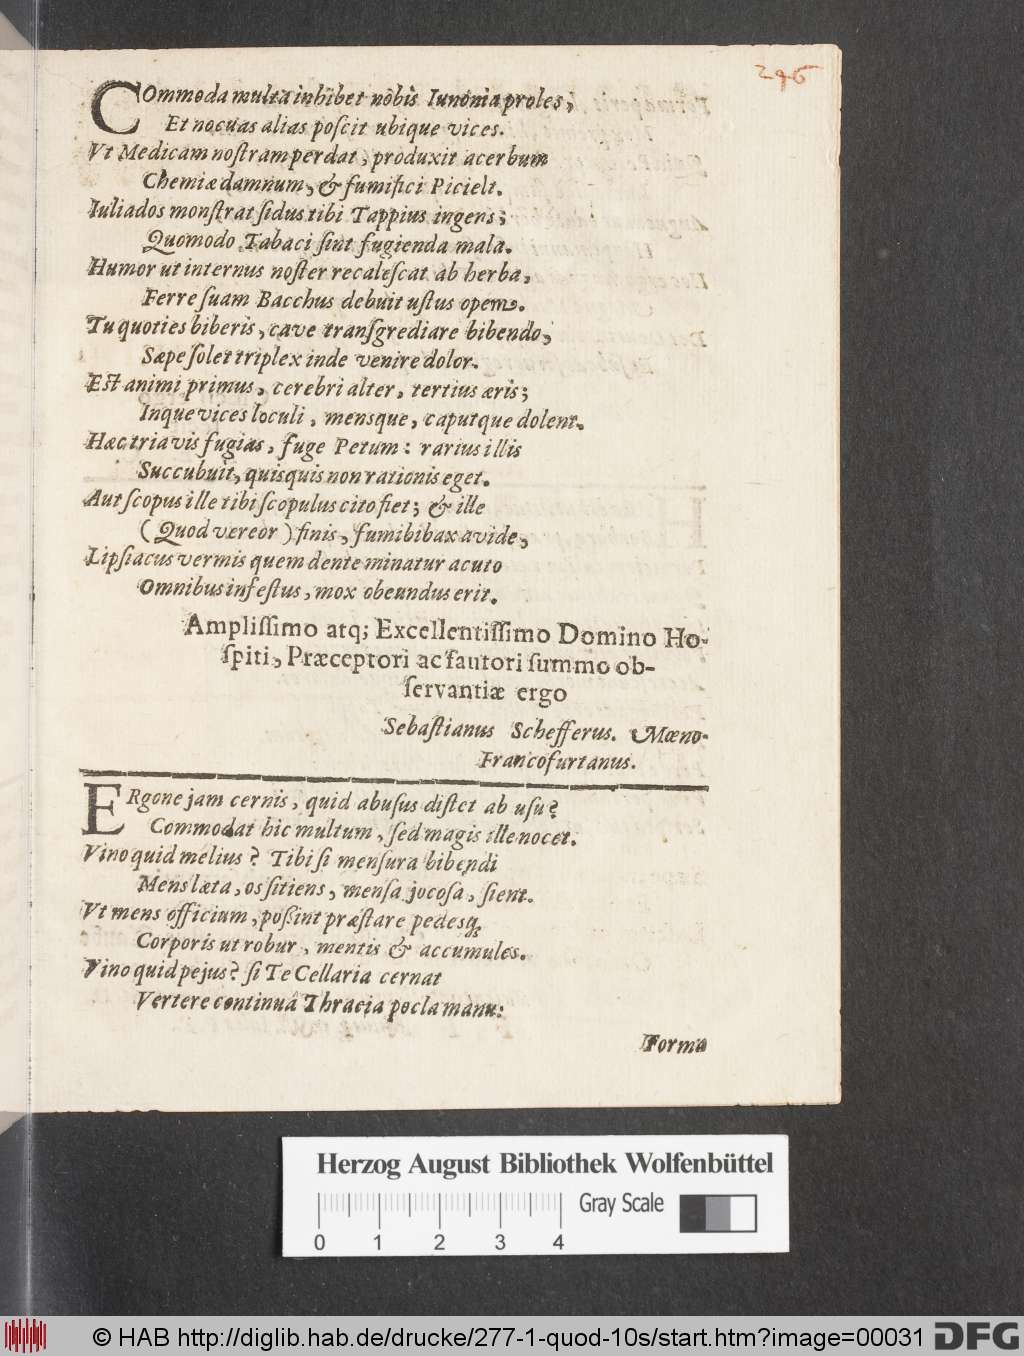 296
COmmoda multa inhibet nobis Iunonia proles,
Et nocuas alias poscit ubique vices.
Vt Medicam nostram perdat, produxit acerbum
Chemiæ damnum, & fumifici Picielt.
Iuliados monstrat sidus tibi Tappius ingens;
Quomodo Tabaci sint fugienda mala.
Humor ut internus noster recalescat ab herba,
Ferre suam Bacchus debuit ustus opem.
Tu quoties biberis, cave transgrediare bibendo,
Sæpe solet triplex inde venire dolor.
Est animi primus, cerebri alter, tertius æris;
Inque vices loculi, mensque, caputque dolent.
Hæc tria vis fugias, fuge Petum: rarius illis
Succubuit, quisquis non rationis eget.
Aut scopus ille tibi scopulus cito fiet; & ille
(Quod vereor) finis, fumibibax avide,
Lipsiacus vermis quem dente minatur acuto
Omnibus infestus, mox obeundus erit.
Amplissimo atq; Excellentissimo Domino Ho-
spiti, Præceptori ac fautori summo ob-
servantiæ ergo
Sebastianus Schefferus. Mœno-
Francofurtanus.
ERgone jam cernis, quid abusus distet ab usu?
Commodat hic multum, sed magis ille nocet.
Vino quid melius? Tibi si mensura bibendi
Mens læta, os sitiens, mensa jocosa, sient.
Vt mens officium, possint præstare pedesq;
Corporis ut robur, mentis & accumules.
Vino quid pejus? si Te Cellaria cernat
Vertere continuâ Thracia pocla manu:
Forma
Herzog August Bibliothek Wolfenbüttel
Gray Scale
0 1 2 3 4
© HAB http://diglib.hab.de/drucke/277-1-quod-10s/start.htm?image=00031
DFG